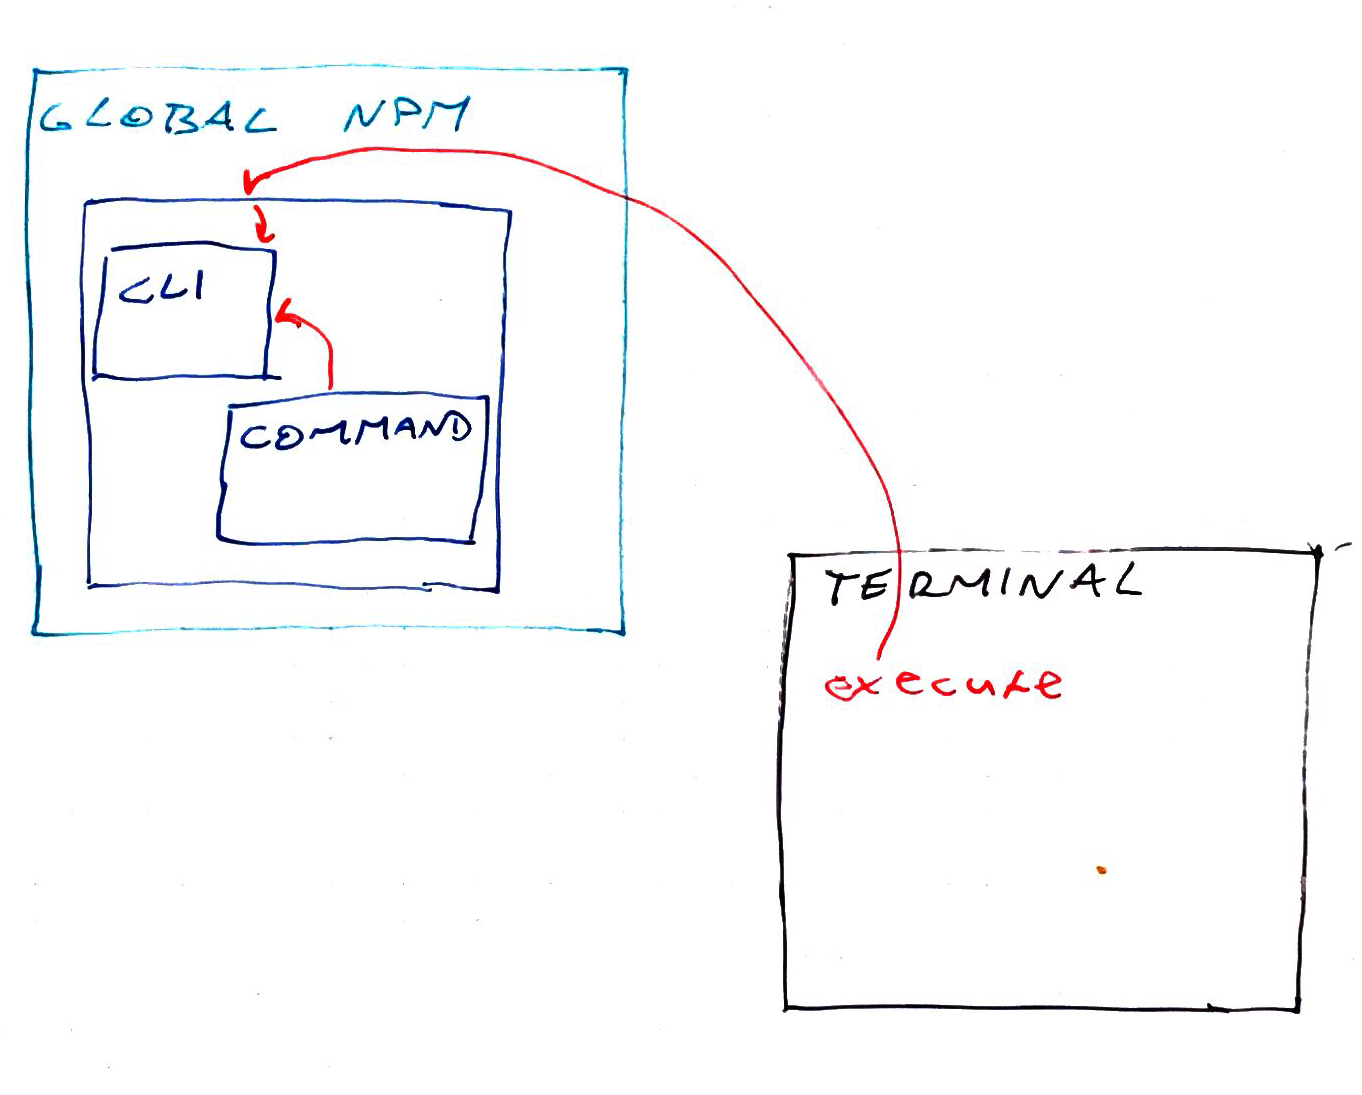 GLOBAL NPM
CLI
COMMAND
TERMINAL
execute